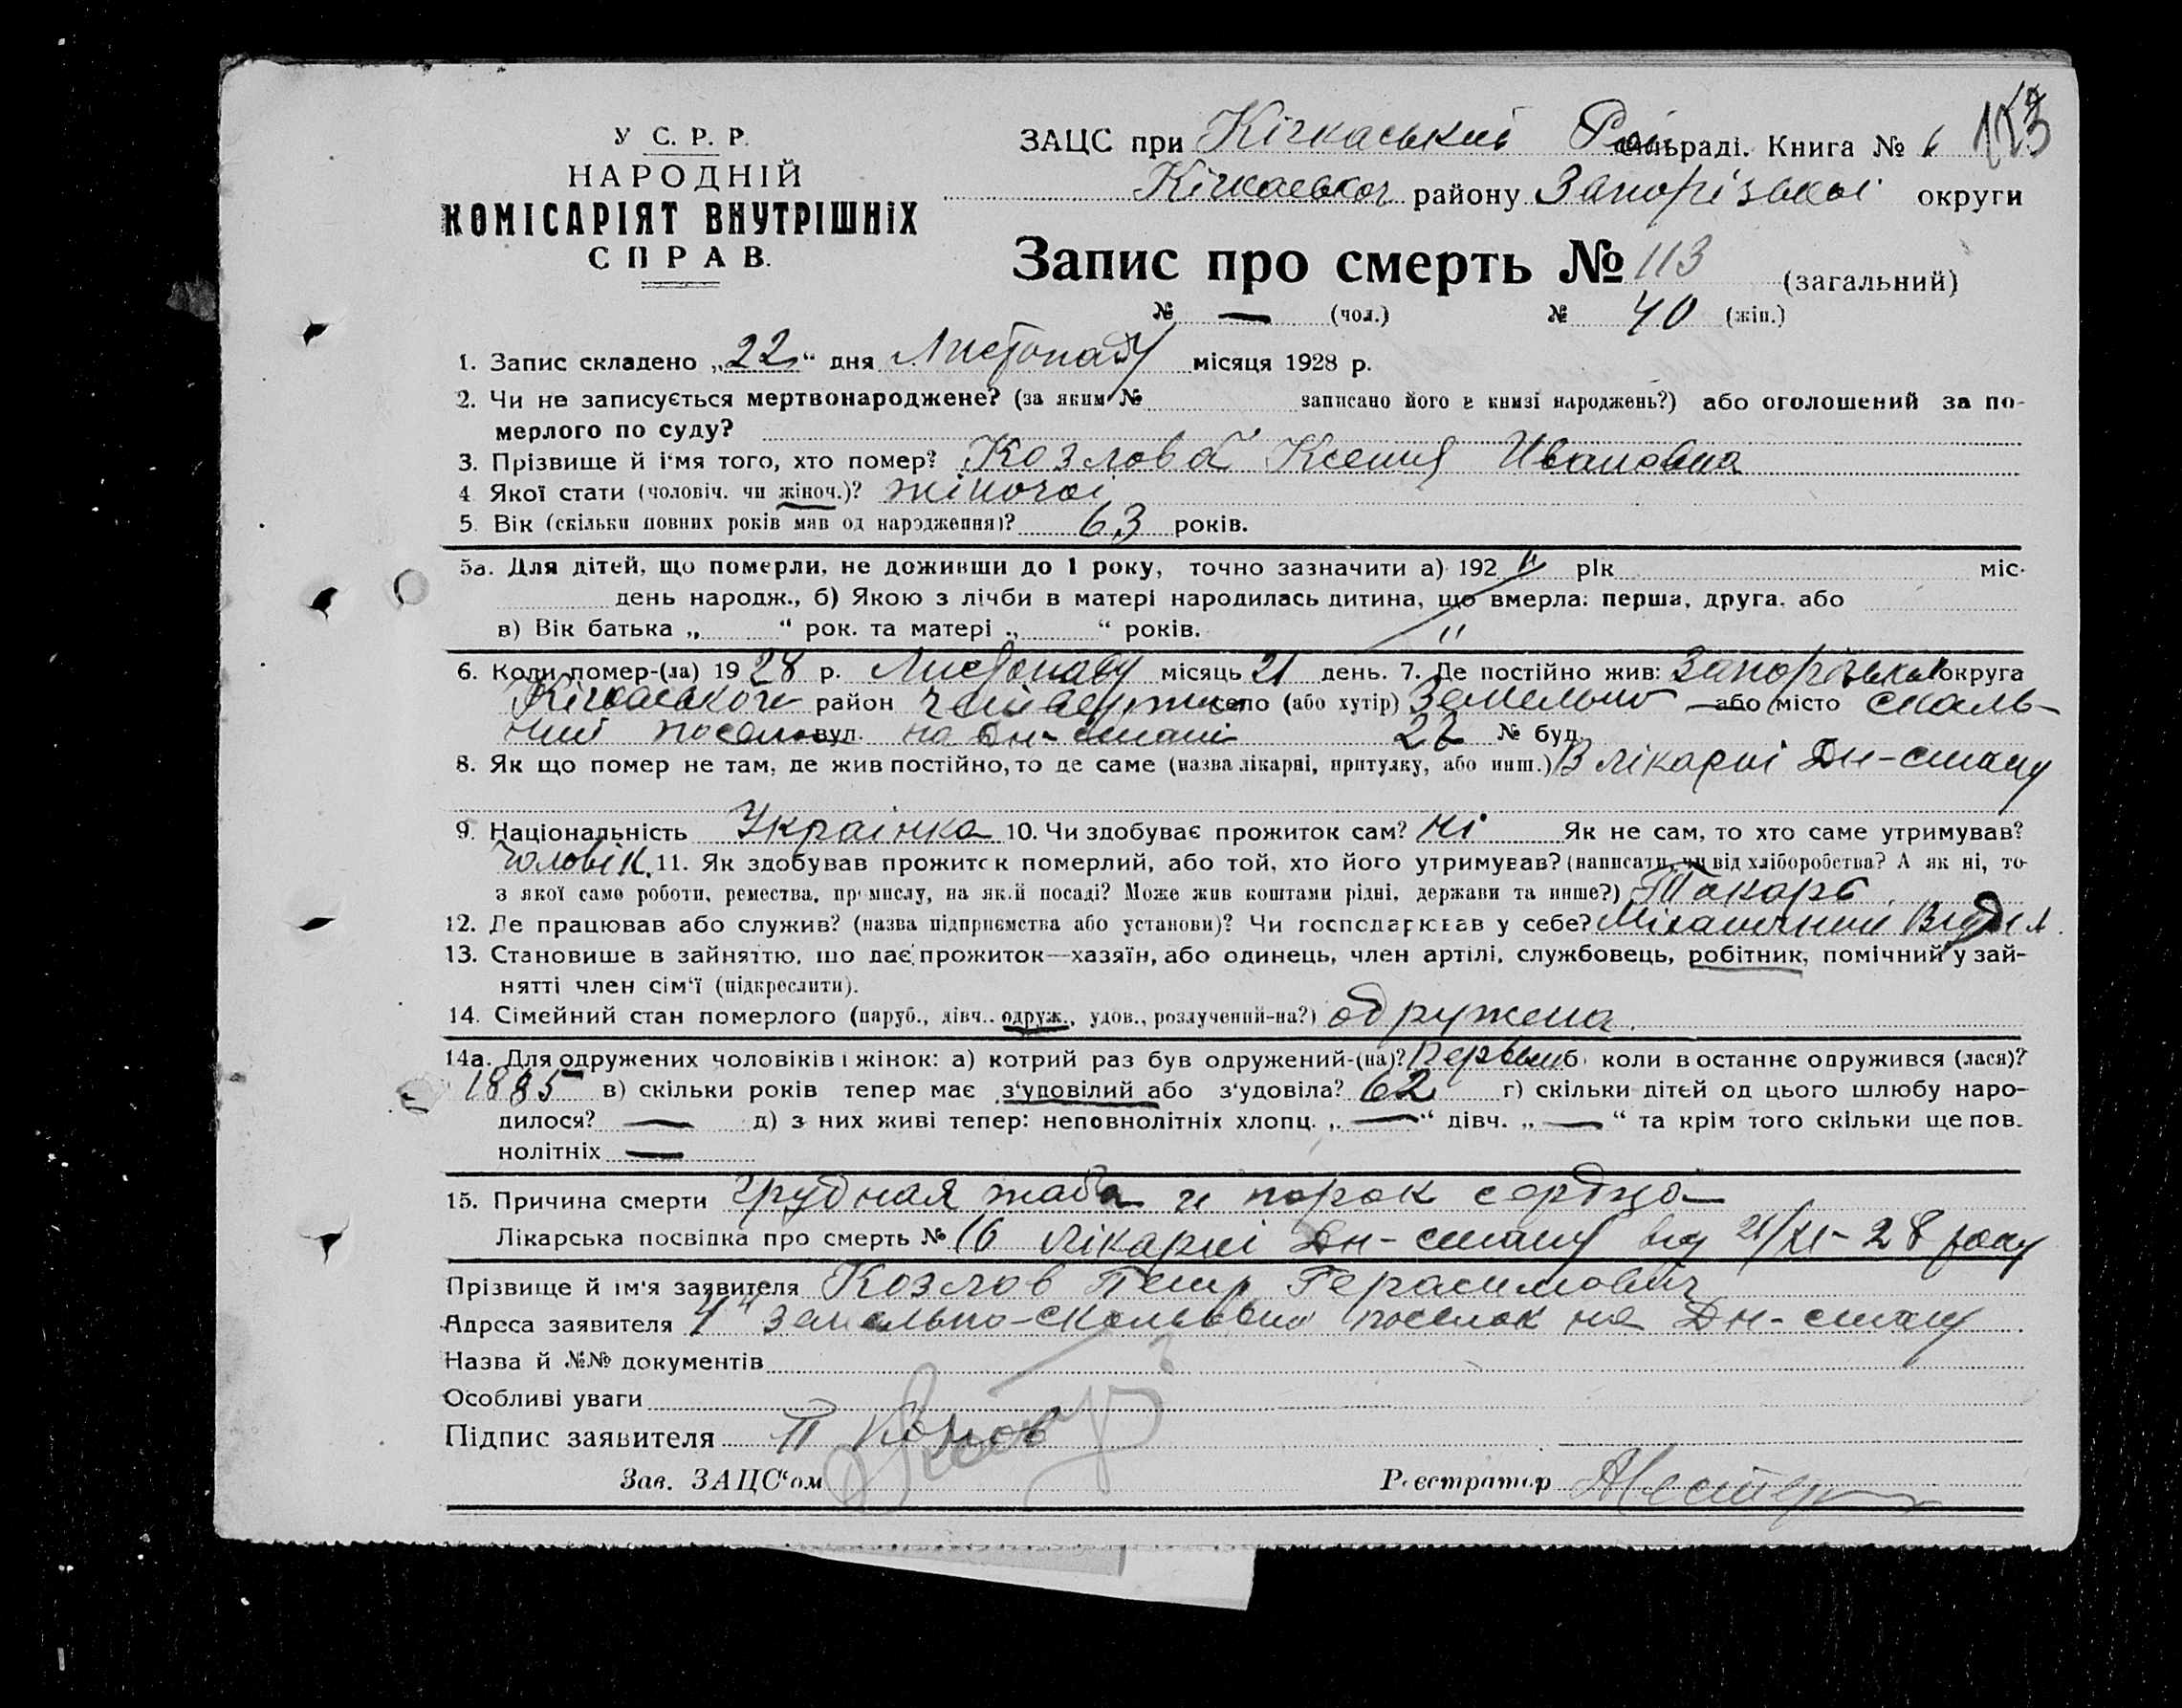 У С. Р. Р.
НАРОДНІЙ
КОМІСАРІЯТ ВНУТРІШНІХ
СПРАВ.
ЗАЦС при Кічкаський Рай сільраді. Книга № 6 113
Кічкаської району Запорізької округи
Запис про смерть № 113 (загальний)
№ — (чол.) № 40 (жін.)
1. Запис складено „22" дня Листопаду місяця 1928 р.
2. Чи не записується мертвонароджене? (за яким № записано його в книзі народжень?) або оголошений за по-
мерлого по суду?
3. Прізвище й і'мя того, хто помер? Козлова Ксения Ивановна
4 Якої стати (чоловіч. чи жіноч.)? жіночої
5. Вік (скільки повних років мав од народження)? 63 років.
5а. Для дітей, що померли, не доживши до 1 року, точно зазначити а) 192 " рік міс.
день народж., б) Якою з лічби в матері народилась дитина, що вмерла: перша, друга, або
в) Вік батька „ " рок. та матері „ " років. "
6. Коли помер-(ла) 1928 р. Листопаду місяць 21 день. 7. Де постійно жив: Запорізької округа
Кічкаського район село (або хутір) Земельно або місто скаль-
ний посел вул. на Дн-стані 22 № буд.
8. Як що помер не там, де жив постійно, то де саме (назва лікарні, притулку, або инш.) В лікарні Дн-стану
9. Національність Українка 10. Чи здобуває прожиток сам? ні Як не сам, то хто саме утримував?
чоловік. 11. Як здобував прожиток померлий, або той, хто його утримував? (написати, чи від хліборобства? А як ні, то
з якої само роботи, ремества, промислу, на якій посаді? Може жив коштами рідні, держави та инше?) Токарь
12. Де працював або служив? (назва підприємства або установи)? Чи господарював у себе? Міханичний Відділ.
13. Становище в зайняттю, що дає прожиток—хазяїн, або одинець, член артілі, службовець, робітник, помічний у зай-
нятті член сім'ї (підкреслити).
14. Сімейний стан померлого (паруб., дівч., одруж., удов., розлучений-на?) одружена.
14а. Для одружених чоловіків і жінок: а) котрий раз був одружений-(на)? Первый б) коли востаннє одружився (лася)?
1885 в) скільки років тепер має з'удовілий або з'удовіла? 62 г) скільки дітей од цього шлюбу наро-
дилося? — д) з них живі тепер: неповнолітніх хлопц. „ — " дівч. „ — " та крім того скільки ще пов.
нолітніх —
15. Причина смерти грудная жаба и порок сердца
Лікарська посвідка про смерть № 16 лікарні Дн-стану від 21/XI-28 року
Прізвище й ім'я заявителя Козлов Петр Герасимович
Адреса заявителя 4й земельно-скальный поселок на Дн-стану
Назва й №№ документів
Особливі уваги
Підпис заявителя П Козлов
Зав. ЗАЦС'ом Реєстратор